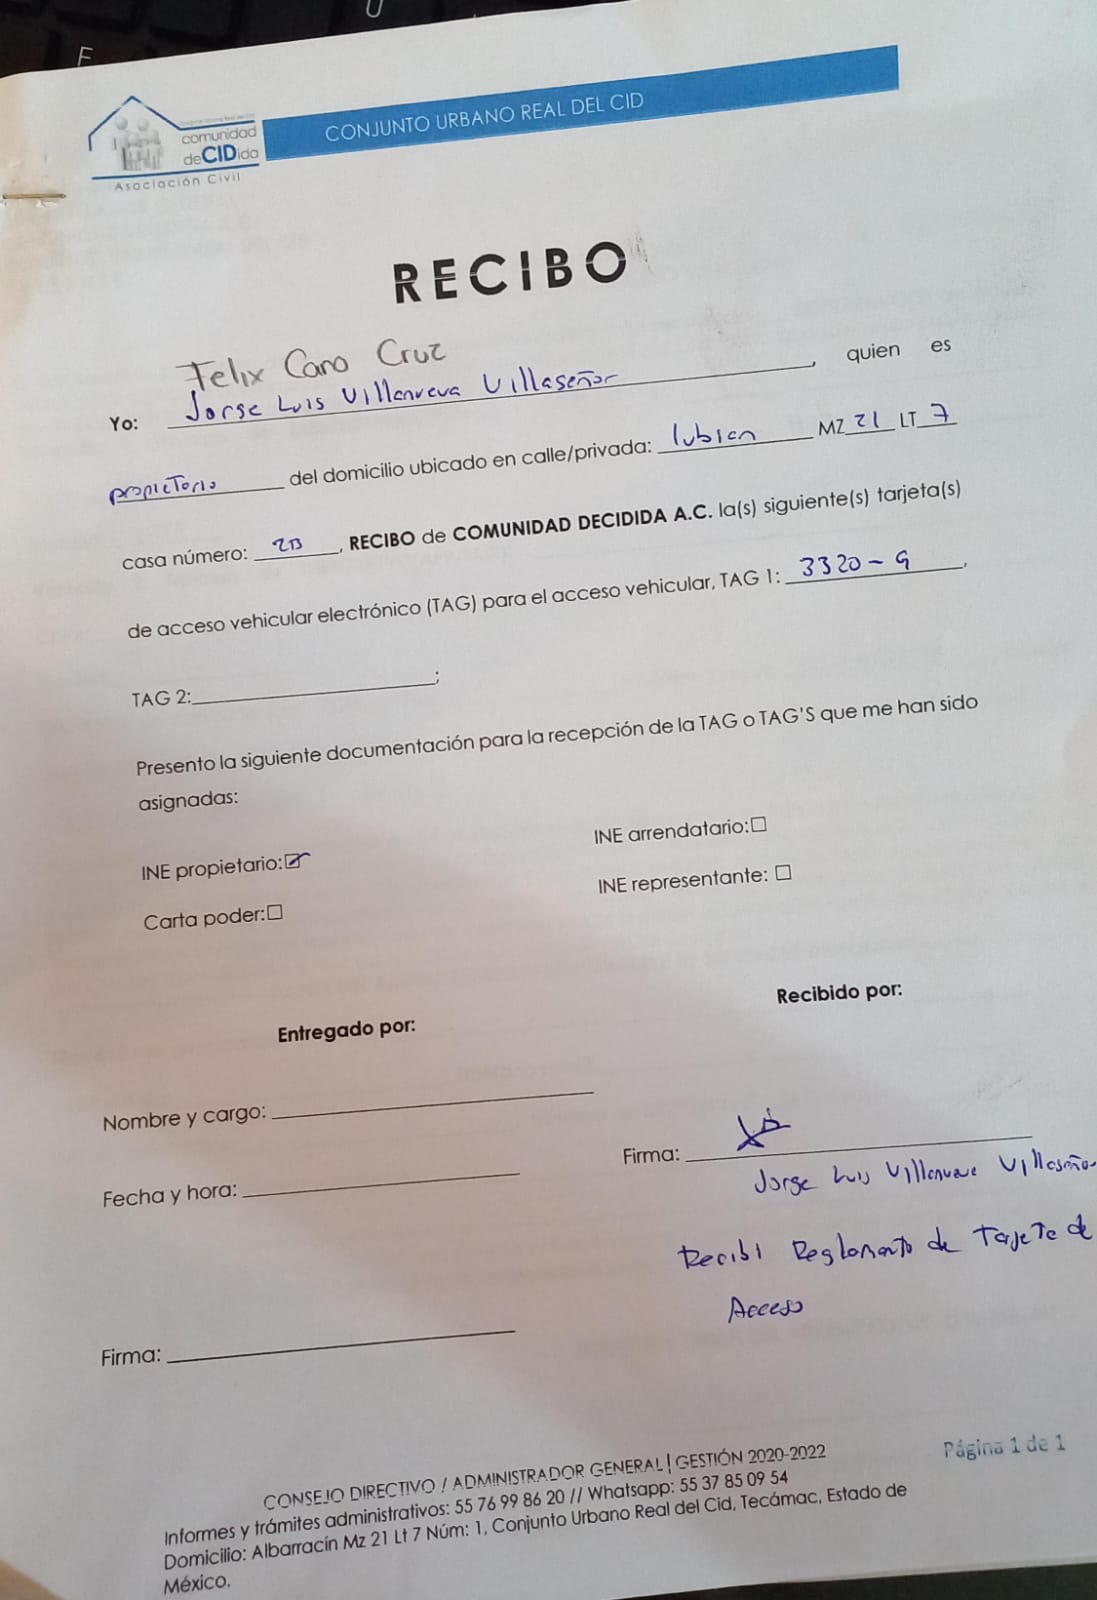 F
U
comunidad
deCIDida
Asociación Civil
CONJUNTO URBANO REAL DEL CID
RECIBO
Felix Cano Cruz
Yo: Jorge Luis Villanueva Villaseñor, quien es
propietario del domicilio ubicado en calle/privada: lubian MZ 21 LT 7
casa número: 2B, RECIBO de COMUNIDAD DECIDIDA A.C. la(s) siguiente(s) tarjeta(s)
de acceso vehicular electrónico (TAG) para el acceso vehicular, TAG 1: 3320-9,
TAG 2: ;
Presento la siguiente documentación para la recepción de la TAG o TAG'S que me han sido
asignadas:
INE propietario:☑ INE arrendatario:☐
Carta poder:☐ INE representante: ☐
Entregado por: Recibido por:
Nombre y cargo:
Firma:
Jorge Luis Villanueva Villaseñor
Fecha y hora:
Recibi Reglamento de Tarjeta de
Acceso
Firma:
CONSEJO DIRECTIVO / ADMINISTRADOR GENERAL | GESTIÓN 2020-2022
Página 1 de 1
Informes y trámites administrativos: 55 76 99 86 20 // Whatsapp: 55 37 85 09 54
Domicilio: Albarracín Mz 21 Lt 7 Núm: 1, Conjunto Urbano Real del Cid, Tecámac, Estado de
México.